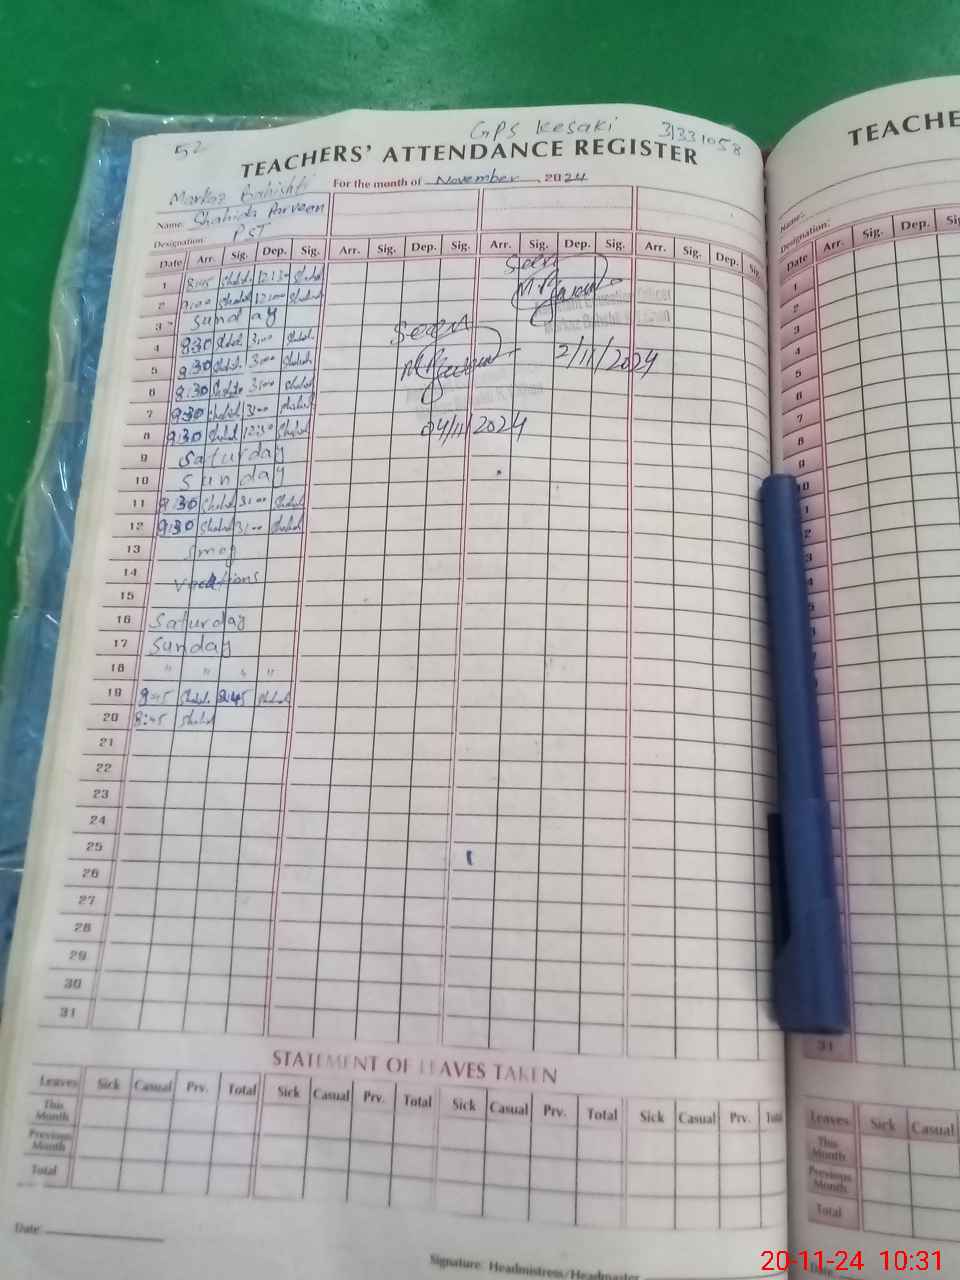 52 GPS Kesaki 31331058
TEACHERS' ATTENDANCE REGISTER
Markaz Bahishti For the month of November 2024
Name: Shahida Parveen
Designation: PST
Date Arr. Sig. Dep. Sig. Arr. Sig. Dep. Sig. Arr. Sig. Dep. Sig. Arr. Sig. Dep. Sig.
1 8:45 Shahid 12:30 Shahid Seen
2 9:00 Shahid 12:00 Shahid
3 Sunday Seen
4 8:30 Shahid 3:00 Shahid
5 8:30 Shahid 3:00 Shahid 2/11/2024
6 8:30 Shahid 3:00 Shahid
7 8:30 Shahid 3:00 Shahid
8 8:30 Shahid 12:30 Shahid 04/11/2024
9 Saturday
10 Sunday
11 8:30 Shahid 3:00 Shahid
12 8:30 Shahid 3:00 Shahid
13 Smog
14 Vacations
15
16 Saturday
17 Sunday
18 " " " "
19 8:45 Shahid 2:45 Shahid
20 8:45 Shahid
21
22
23
24
25
26
27
28
29
30
31
STATEMENT OF LEAVES TAKEN
Leaves Sick Casual Prv. Total Sick Casual Prv. Total Sick Casual Prv. Total Sick Casual Prv. Total
This Month
Previous Month
Total
Date:
Signature: Headmistress/Headmaster
TEACHE
Name:
Designation:
Date Arr. Sig. Dep. Si
1
2
3
4
5
6
7
8
9
10
31
Leaves Sick Casual
This Month
Previous Month
Total
Date:
20-11-24 10:31